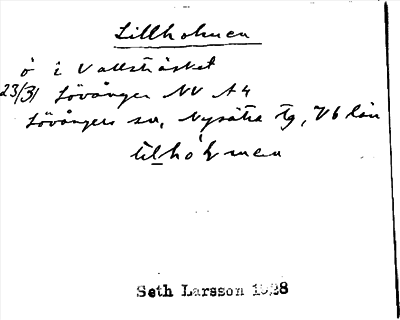 Lillholmen
ö i Vallsträsket
23/31 Lövånger NV A4
Lövångers sn, Nysätra tg, Vb län
lilhólmen
Seth Larsson 1928